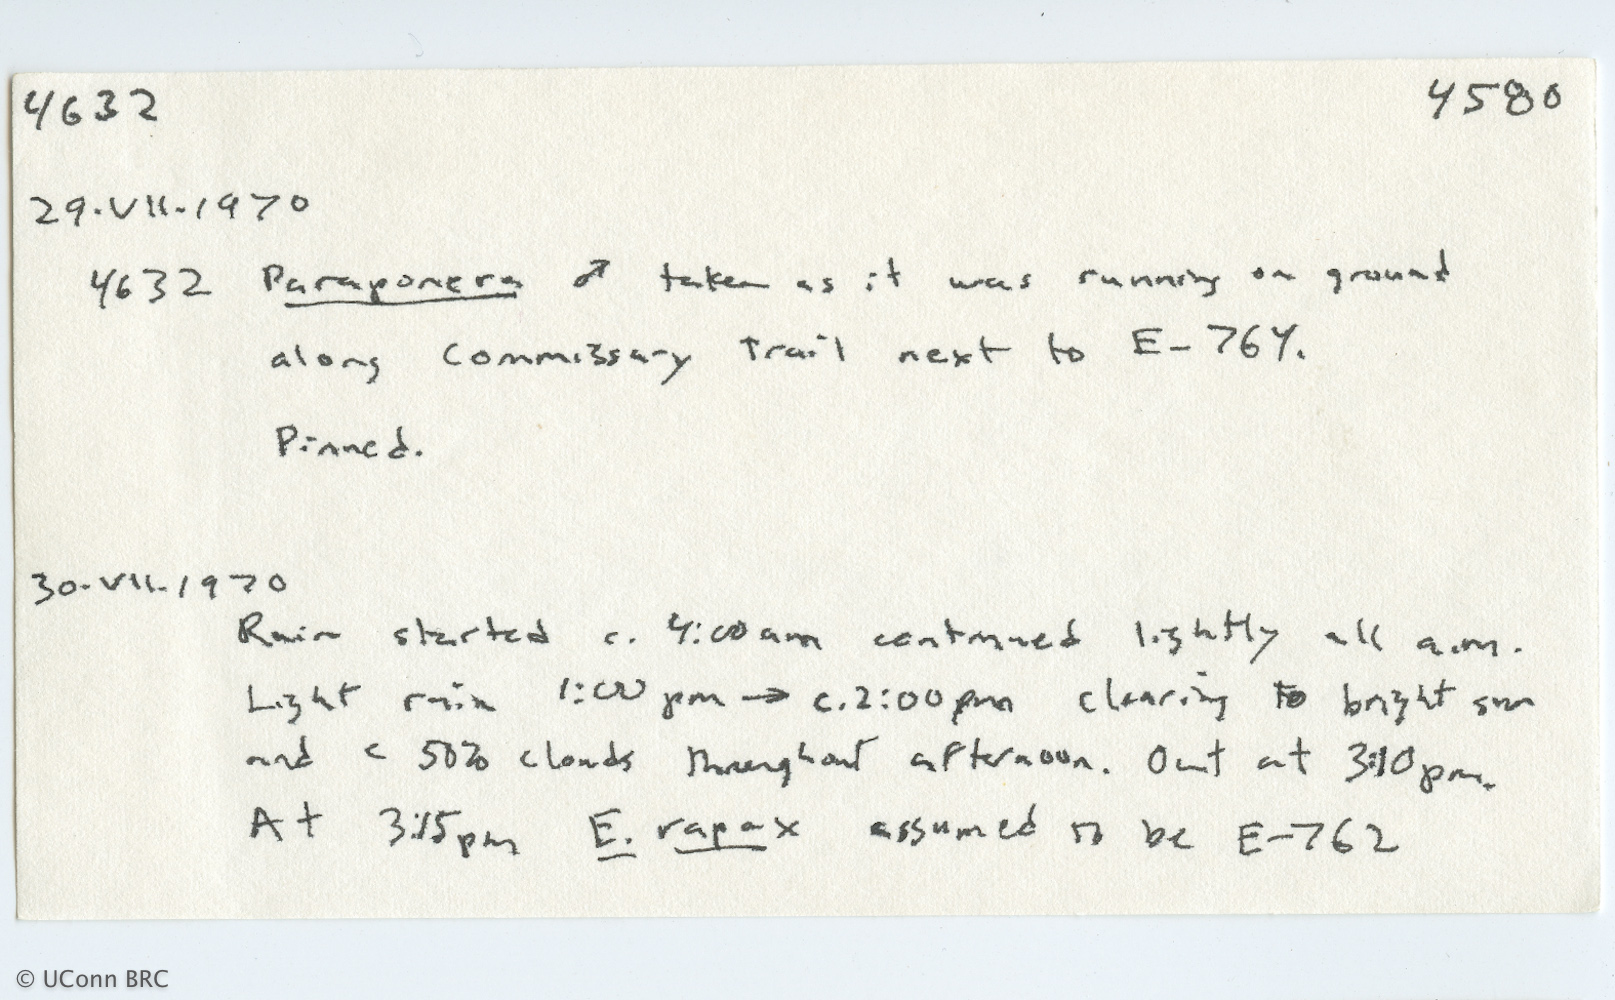 4632 4580
29·VII·1970
4632 Paraponera ♂ taken as it was running on ground
along Commissary Trail next to E-764.
Pinned.
30·VII·1970
Rain started c. 4:00am continued lightly all a.m.
Light rain 1:00 pm → c. 2:00 pm clearing to bright sun
and c 50% clouds throughout afternoon. Out at 3:10 pm.
At 3:15 pm E. rapax assumed to be E-762
© UConn BRC